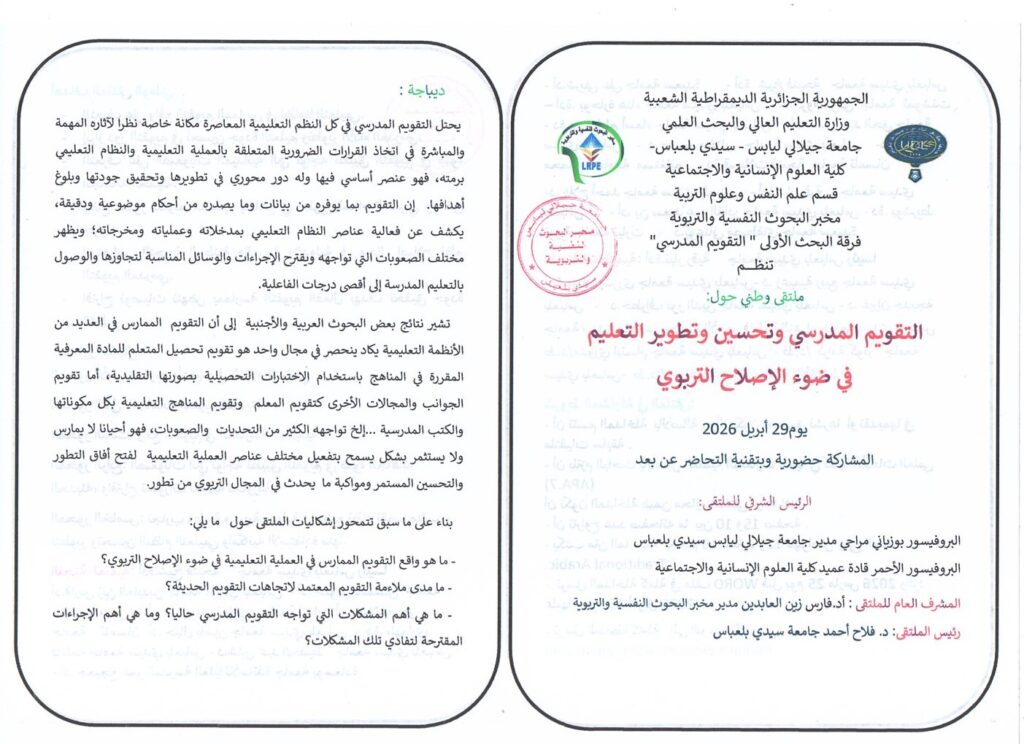 الجمهورية الجزائرية الديمقراطية الشعبية
وزارة التعليم العالي والبحث العلمي
جامعة جيلالي ليابس - سيدي بلعباس-
كلية العلوم الإنسانية والاجتماعية
قسم علم النفس وعلوم التربية
مخبر البحوث النفسية والتربوية
فرقة البحث الأولى " التقويم المدرسي"
تنظم
LRPE
جامعة جيلالي ليابس
مخبر البحوث
النفسية
والتربوية
سيدي بلعباس
ملتقى وطني حول:
التقويم المدرسي وتحسين وتطوير التعليم
في ضوء الإصلاح التربوي
يوم29 أبريل 2026
المشاركة حضورية وبتقنية التحاضر عن بعد
الرئيس الشرفي للملتقى:
البروفيسور بوزياني مراحي مدير جامعة جيلالي ليابس سيدي بلعباس
البروفيسور الأحمر قادة عميد كلية العلوم الإنسانية والاجتماعية
المشرف العام للملتقى : أد.فارس زين العابدين مدير مخبر البحوث النفسية والتربوية
رئيس الملتقى: د. فلاح أحمد جامعة سيدي بلعباس
ديباجة :
يحتل التقويم المدرسي في كل النظم التعليمية المعاصرة مكانة خاصة نظرا لآثاره المهمة
والمباشرة في اتخاذ القرارات الضرورية المتعلقة بالعملية التعليمية والنظام التعليمي
برمته، فهو عنصر أساسي فيها وله دور محوري في تطويرها وتحقيق جودتها وبلوغ
أهدافها. إن التقويم بما يوفره من بيانات وما يصدره من أحكام موضوعية ودقيقة،
يكشف عن فعالية عناصر النظام التعليمي بمدخلاته وعملياته ومخرجاته؛ ويظهر
مختلف الصعوبات التي تواجهه ويقترح الإجراءات والوسائل المناسبة لتجاوزها والوصول
بالتعليم المدرسة إلى أقصى درجات الفاعلية.
تشير نتائج بعض البحوث العربية والأجنبية إلى أن التقويم الممارس في العديد من
الأنظمة التعليمية يكاد ينحصر في مجال واحد هو تقويم تحصيل المتعلم للمادة المعرفية
المقررة في المناهج باستخدام الاختبارات التحصيلية بصورتها التقليدية، أما تقويم
الجوانب والمجالات الأخرى كتقويم المعلم وتقويم المناهج التعليمية بكل مكوناتها
والكتب المدرسية ...إلخ تواجهه الكثير من التحديات والصعوبات، فهو أحيانا لا يمارس
ولا يستثمر بشكل يسمح بتفعيل مختلف عناصر العملية التعليمية لفتح أفاق التطور
والتحسين المستمر ومواكبة ما يحدث في المجال التربوي من تطور.
بناء على ما سبق تتمحور إشكاليات الملتقى حول ما يلي:
- ما هو واقع التقويم الممارس في العملية التعليمية في ضوء الإصلاح التربوي؟
- ما مدى ملاءمة التقويم المعتمد لاتجاهات التقويم الحديثة؟
- ما هي أهم المشكلات التي تواجه التقويم المدرسي حاليا؟ وما هي أهم الإجراءات
المقترحة لتفادي تلك المشكلات؟